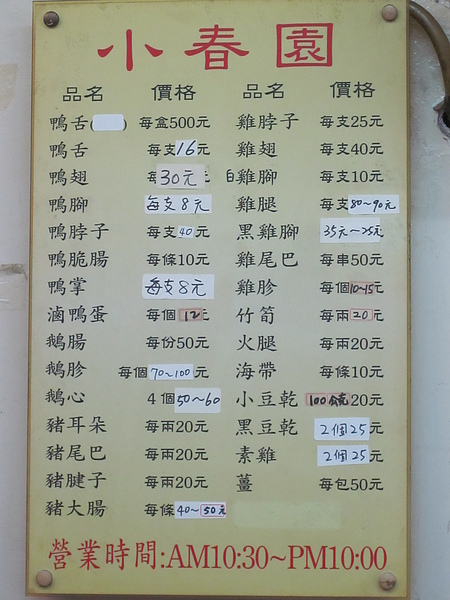 小春園
品名 價格 品名 價格
鴨舌( ) 每盒500元 雞脖子 每支25元
鴨舌 每支16元 雞翅 每支40元
鴨翅 30元 白雞腳 每支10元
鴨腳 每支8元 雞腿 每支80~90元
鴨脖子 每支40元 黑雞腳 35元~25元
鴨脆腸 每條10元 雞尾巴 每串50元
鴨掌 每支8元 雞胗 每個10~15元
滷鴨蛋 每個12元 竹筍 每兩20元
鵝腸 每份50元 火腿 每兩20元
鵝胗 每個70~100元 海帶 每條10元
鵝心 4個50~60 小豆乾 20元
豬耳朵 每兩20元 黑豆乾 2個25元
豬尾巴 每兩20元 素雞 2個25元
豬腱子 每兩20元 薑 每包50元
豬大腸 每條40~50元
營業時間:AM10:30~PM10:00